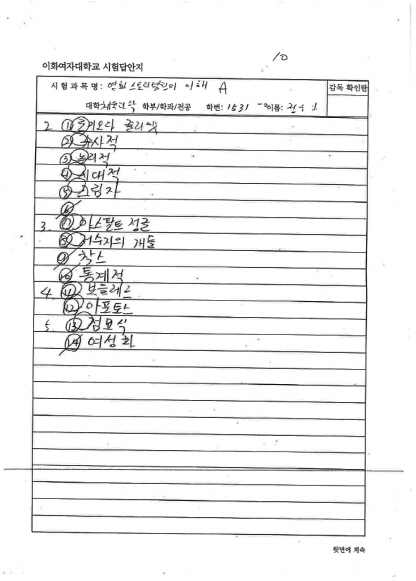 10
이화여자대학교 시험답안지
시 험 과 목 명 : 영화 스토리텔링의 이해 A
감독 확인란
대학 학부/학과/전공 학번: 1531 이름:
2. ①
② 수사적
③ 논리적
④ 시대적
⑤ 그림자
⑥
3. ⑦ 아스팔트 정글
⑧ 저수지의 개들
⑨ 착스
⑩ 통계적
4. ⑪ 브들레스
⑫ 아포토스
5. ⑬ 점묘식
⑭ 여성화
뒷면에 계속